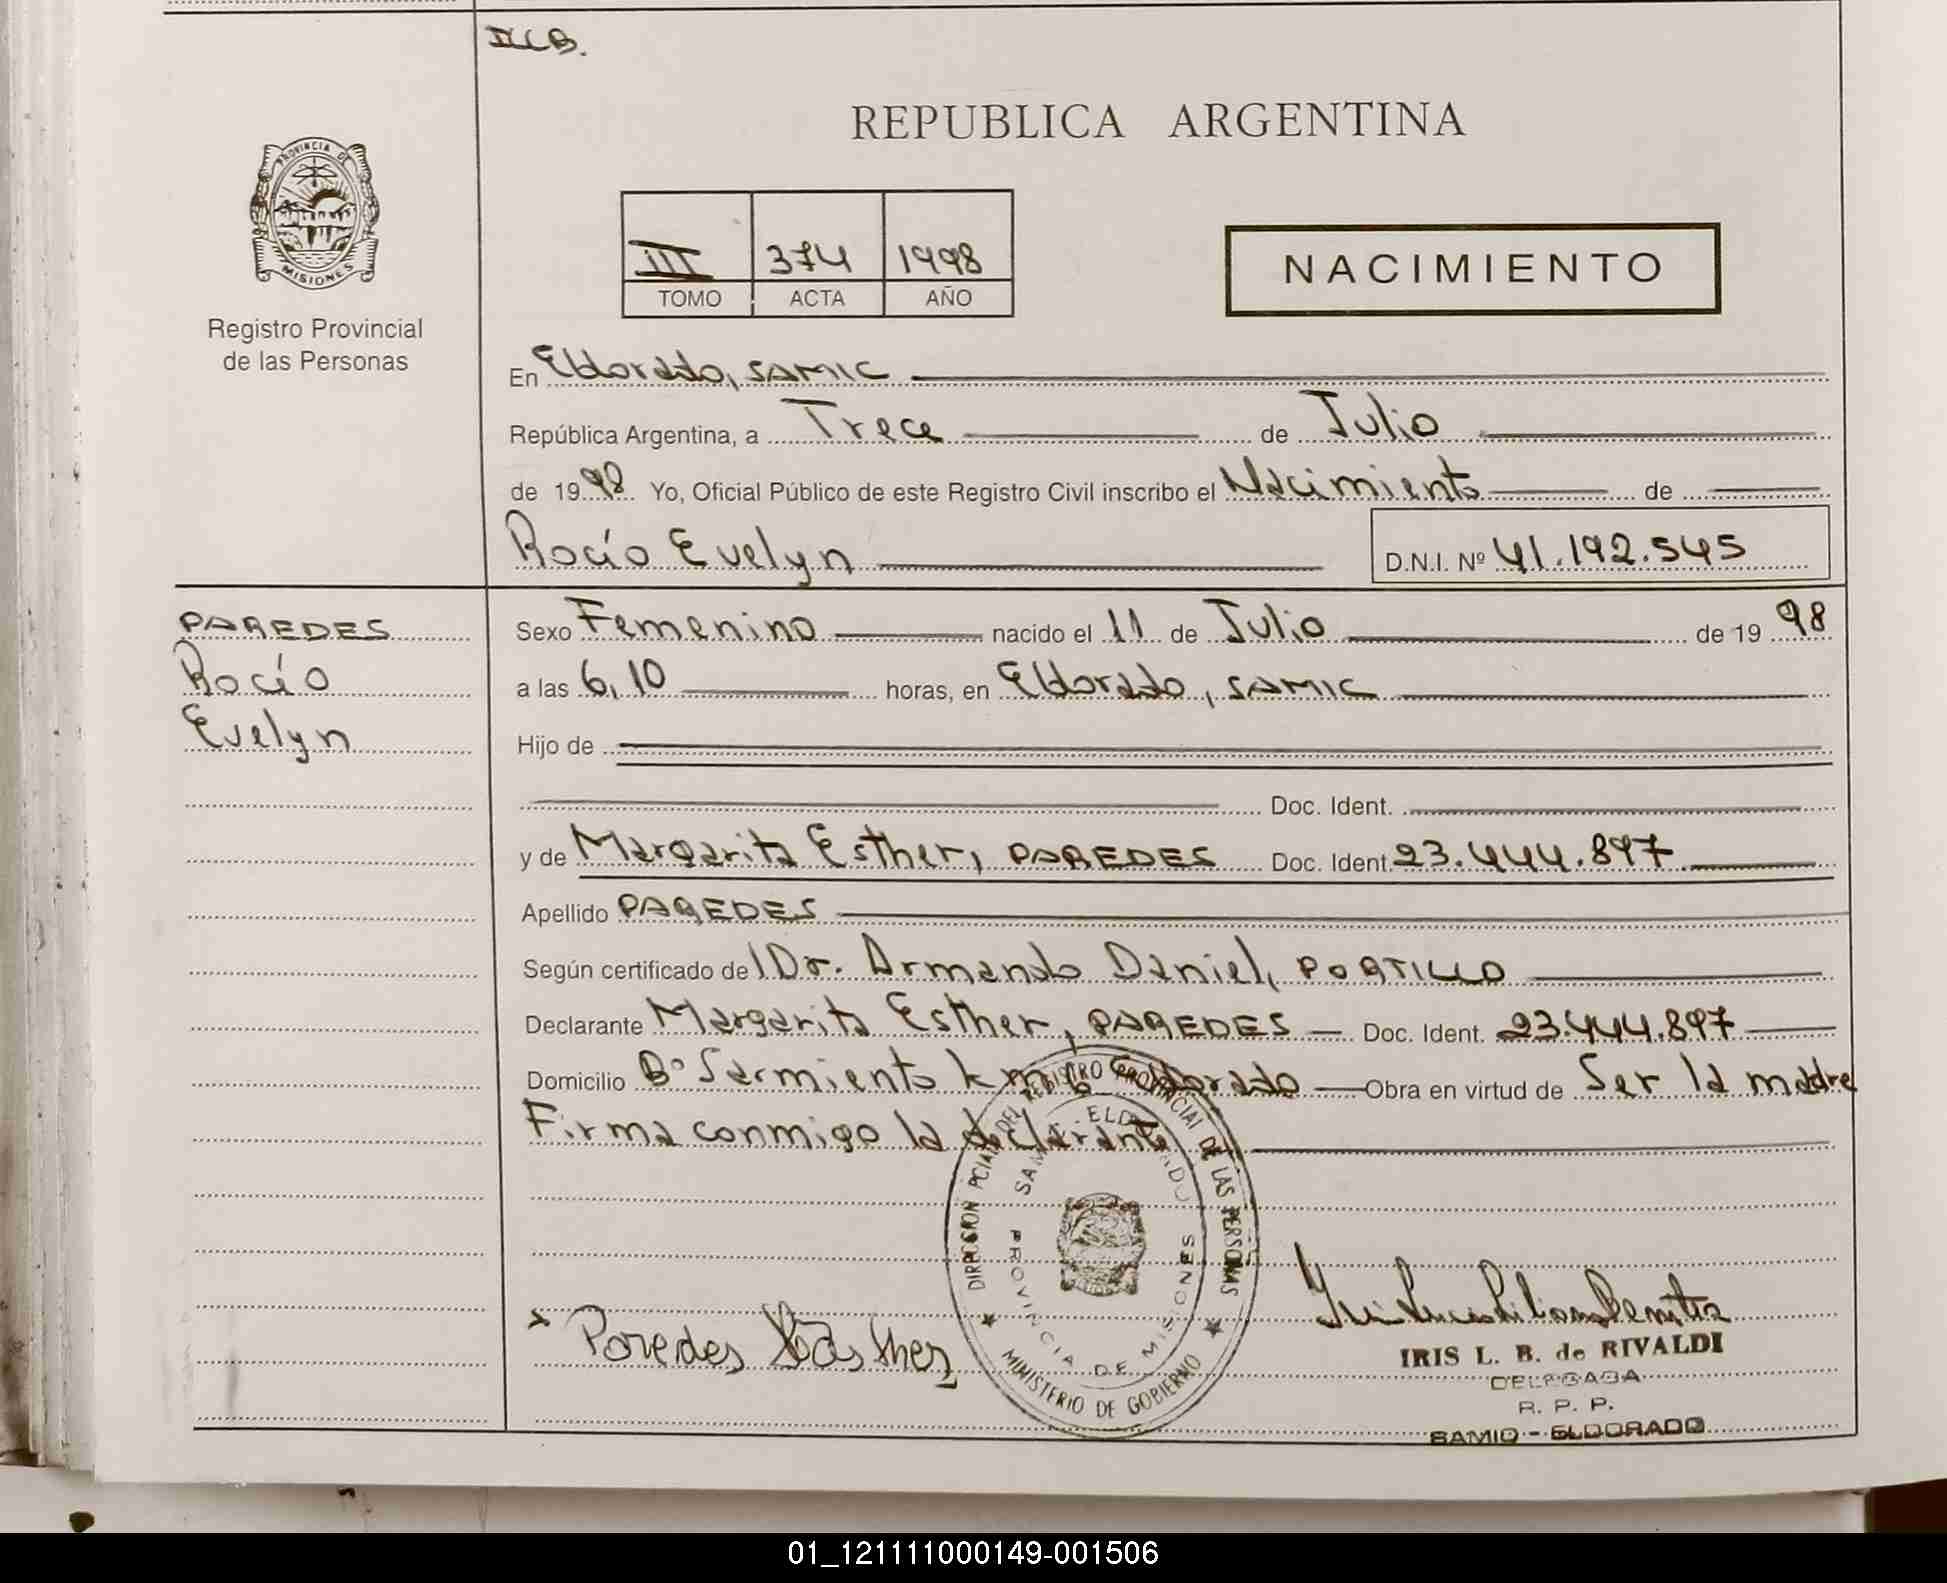 REPUBLICA ARGENTINA
PROVINCIA DE
MISIONES
Registro Provincial
de las Personas
III 374 1998
TOMO ACTA AÑO
NACIMIENTO
En Eldorado, SAMIC
República Argentina, a Trece de Julio
de 1998 Yo, Oficial Público de este Registro Civil inscribo el Nacimiento de
Rocío Evelyn D.N.I. Nº 41.192.545
PAREDES
Rocío
Evelyn
Sexo Femenino nacido el 11 de Julio de 1998
a las 6,10 horas, en Eldorado, SAMIC
Hijo de
Doc. Ident.
y de Margarita Esther, PAREDES Doc. Ident. 23.444.897
Apellido PAREDES
Según certificado del Dr. Armando Daniel, PORTILLO
Declarante Margarita Esther, PAREDES Doc. Ident. 23.444.897
Domicilio Bº Sarmiento km 6 Eldorado Obra en virtud de Ser la madre
Firma conmigo la declarante
DIRECCION PCIAL DEL REGISTRO PROVINCIAL DE LAS PERSONAS
MINISTERIO DE GOBIERNO
ELDORADO
PROVINCIA DE MISIONES
Paredes
IRIS L. B. de RIVALDI
DELEGADA
R. P. P.
SAMIC - ELDORADO
01_121111000149-001506